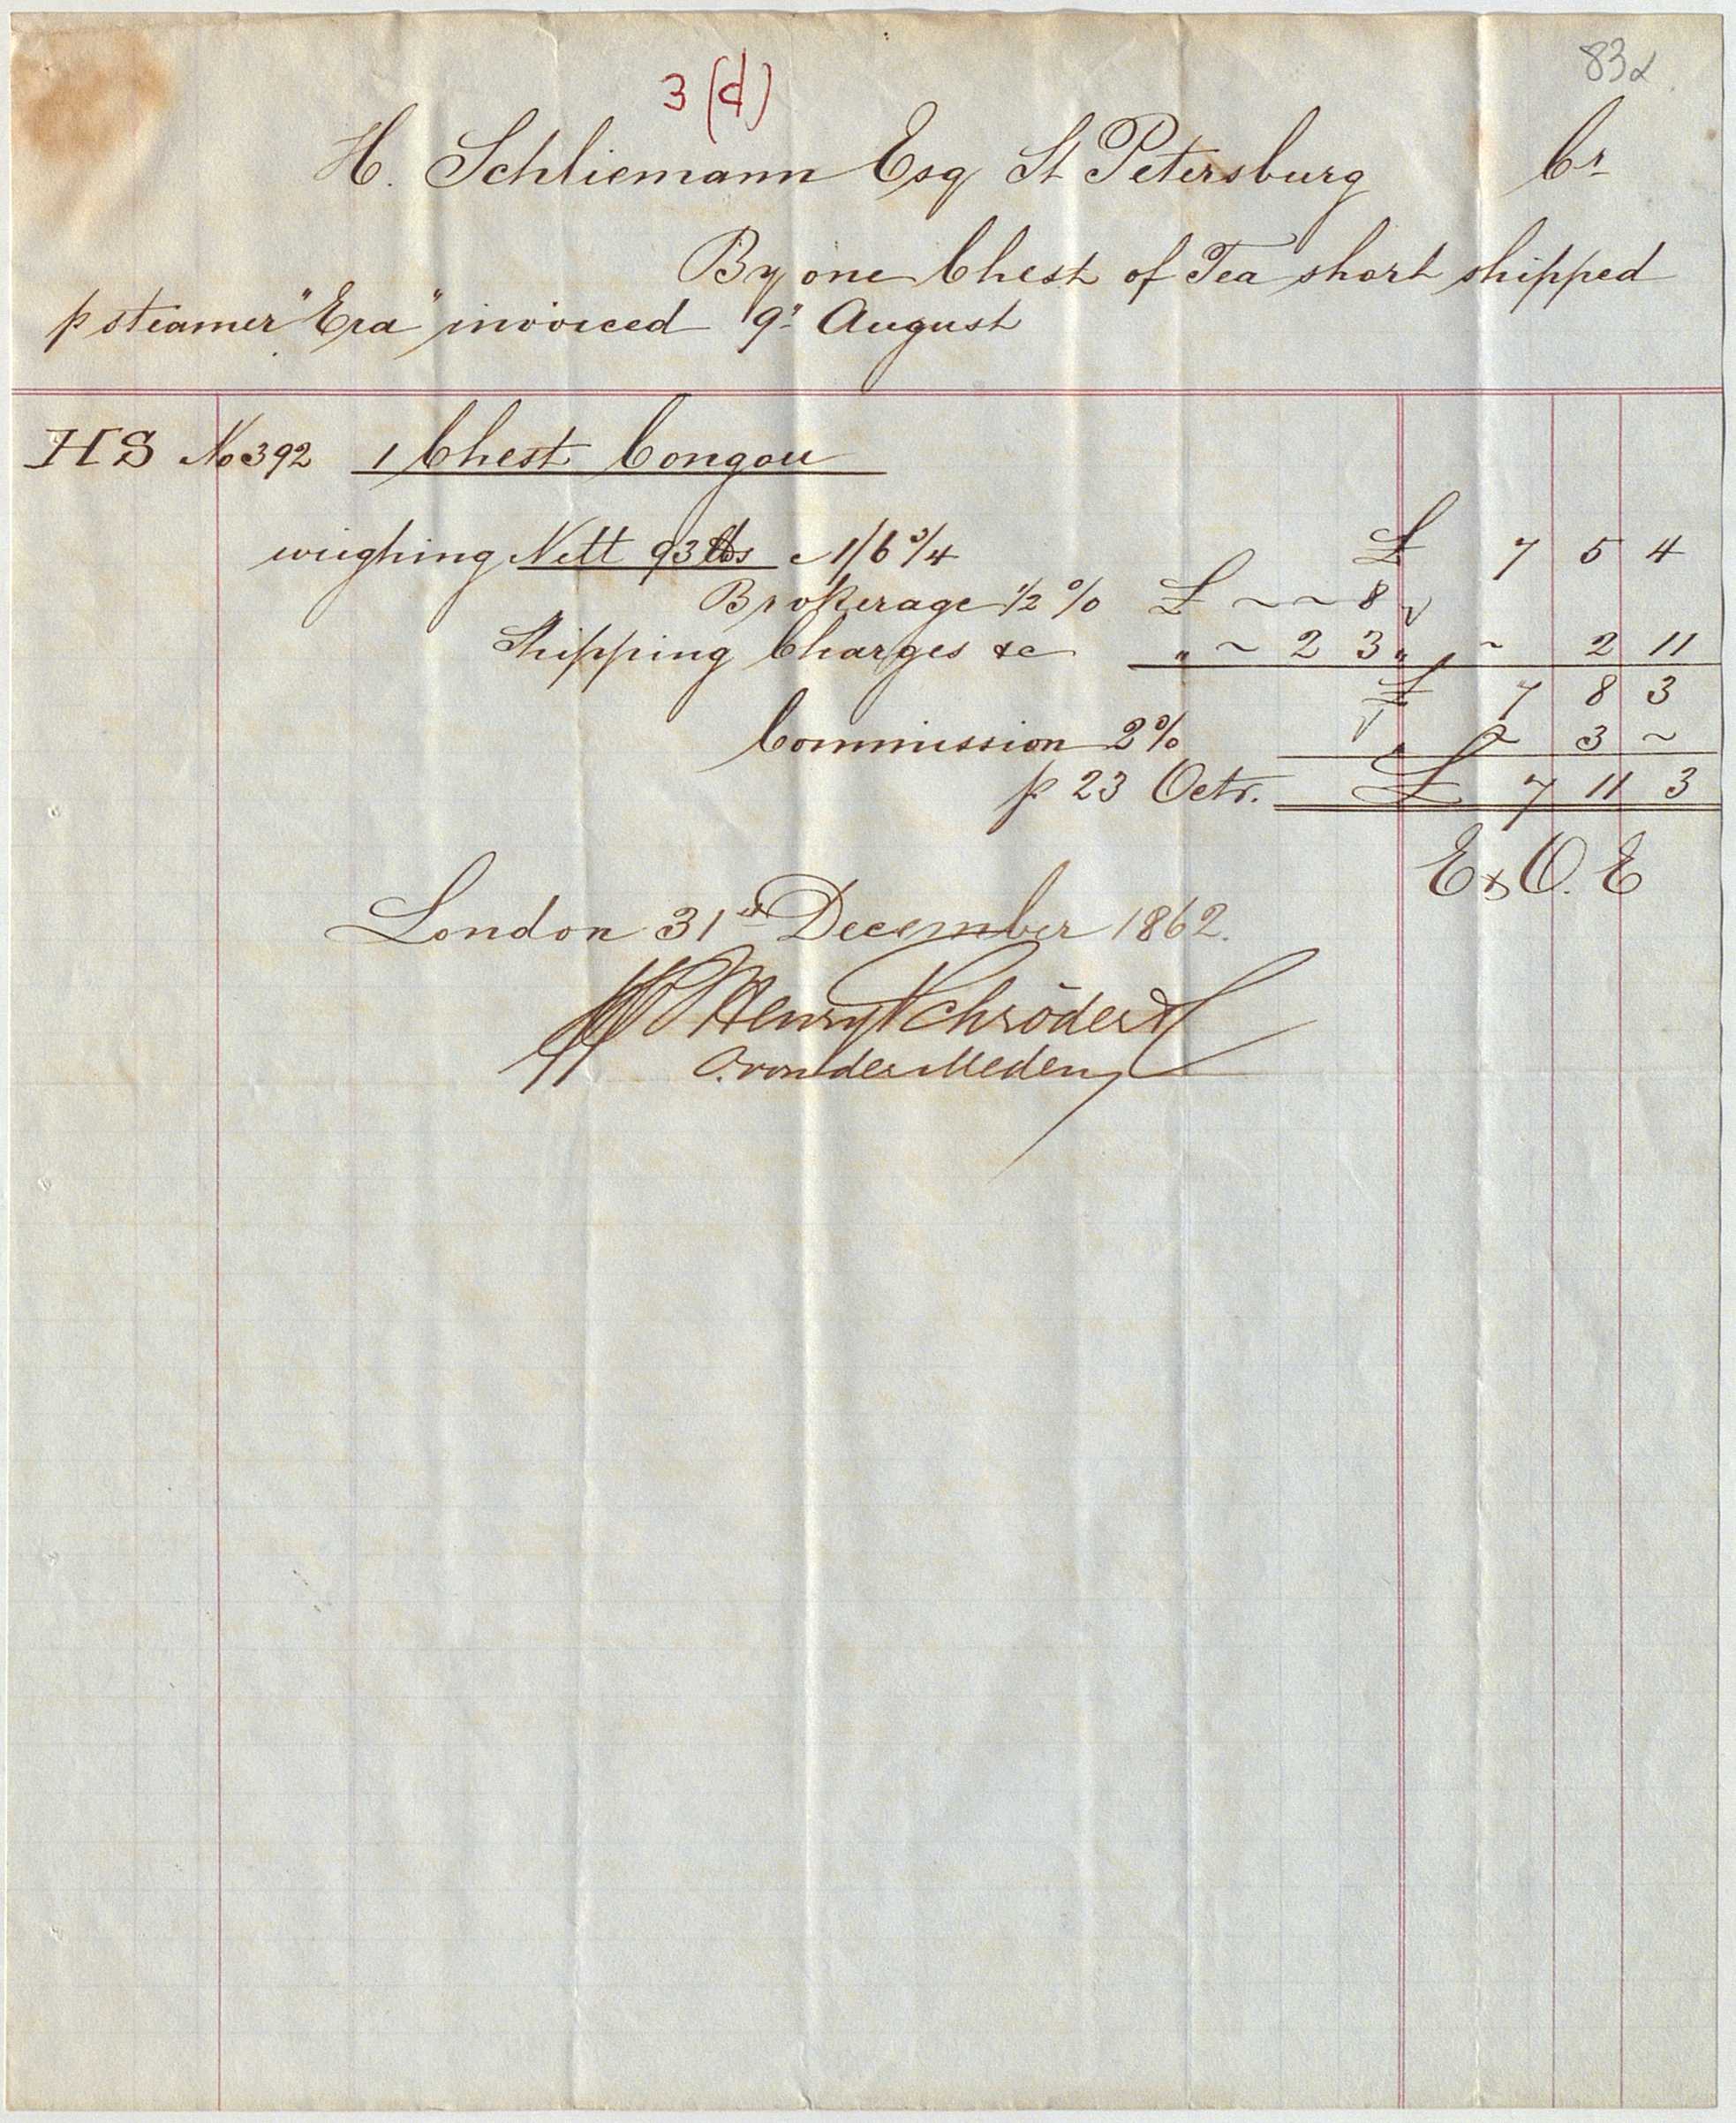 83α
3 (d)
H. Schliemann Esq St Petersburg Cr
By one Chest of Tea short shipped
p steamer "Era" invoiced 9" August
HS No 392 1 Chest Congou
weighing Nett 93 lbs @ 1/6 3/4 £ 7 5 4
Brokerage 1/2 % £ ~ ~ 8
Shipping Charges &c " ~ 2 3 " ~ 2 11
£ 7 8 3
Commission 2% " ~ 3 ~
p 23 Octr. £ 7 11 3
E & O. E
London 31st December 1862.
J Henry Schröder & C
O. von der Meden